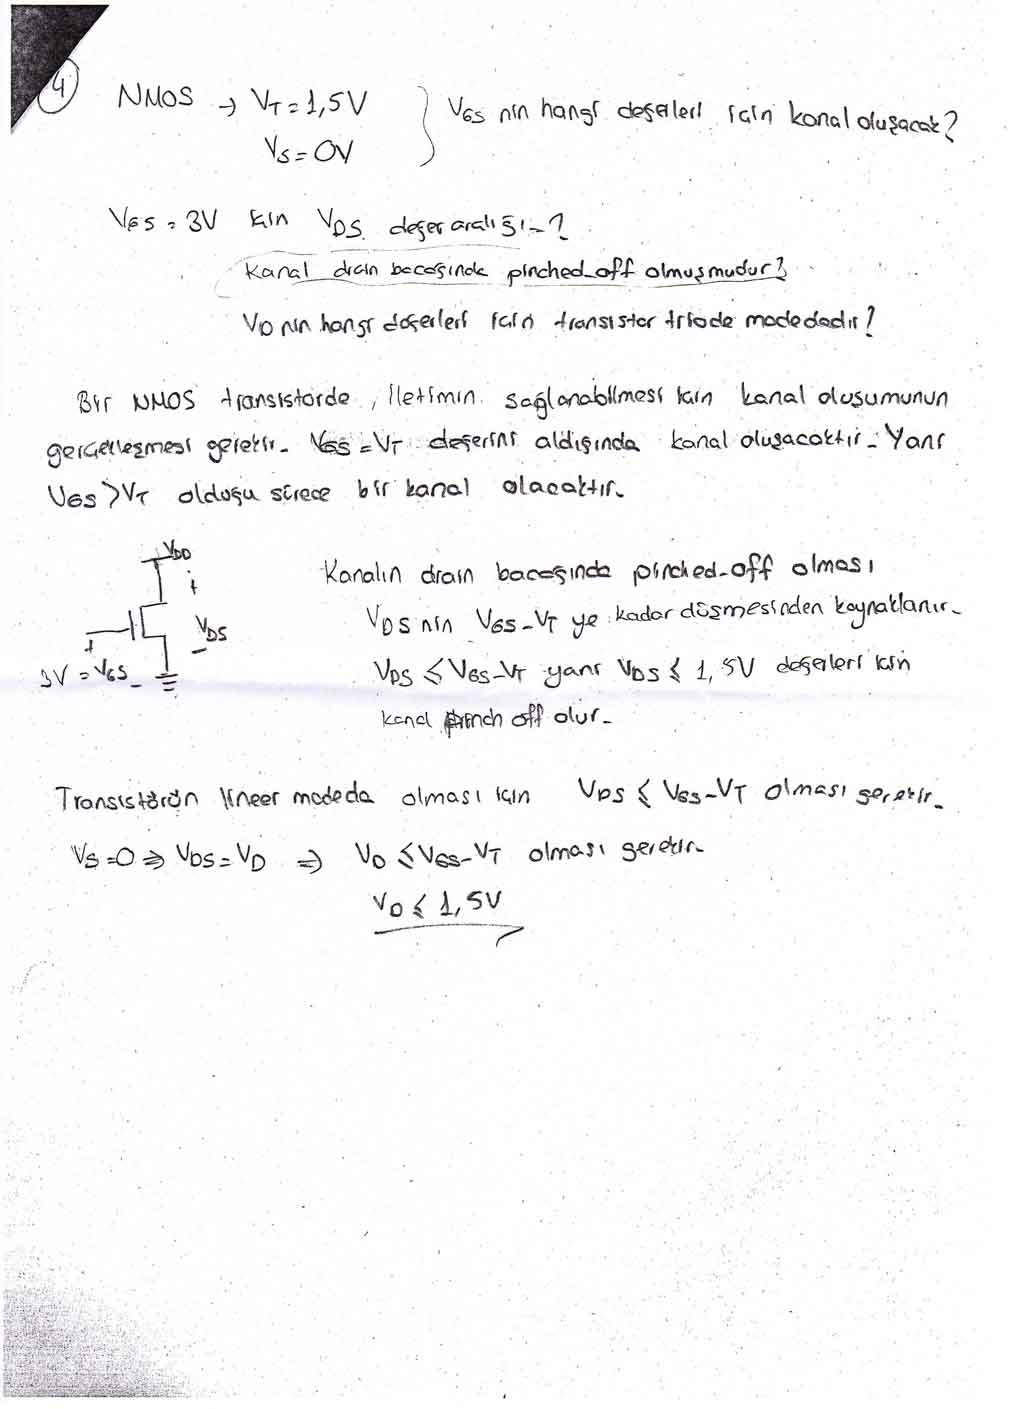 4
NMOS → VT = 1,5V
VS = 0V
VGS nin hangi değerleri için kanal oluşacak?
VGS = 3V için VDS değer aralığı-?
Kanal drain bacağında pinched-off olmuşmudur?
VD nin hangi değerleri için transistor triode modedadır?
Bir NMOS transistörde, iletimin sağlanabilmesi için kanal oluşumunun
gerçekleşmesi gerekir. VGS = VT değerini aldığında kanal oluşacaktır. Yani
VGS > VT olduğu sürece bir kanal olacaktır.
VDD
+
VDS
-
+
3V = VGS -
Kanalın drain bacağında pinched-off olması
VDS nin VGS-VT ye kadar düşmesinden kaynaklanır.
VDS ≤ VGS-VT yani VDS ≤ 1,5V değerleri için
kanal pinch off olur.
Transistörün lineer modeda olması için VDS ≤ VGS-VT olması gerekir.
VS=0 ⇒ VDS = VD ⇒ VD ≤ VGS-VT olması gerekir.
VD ≤ 1,5V